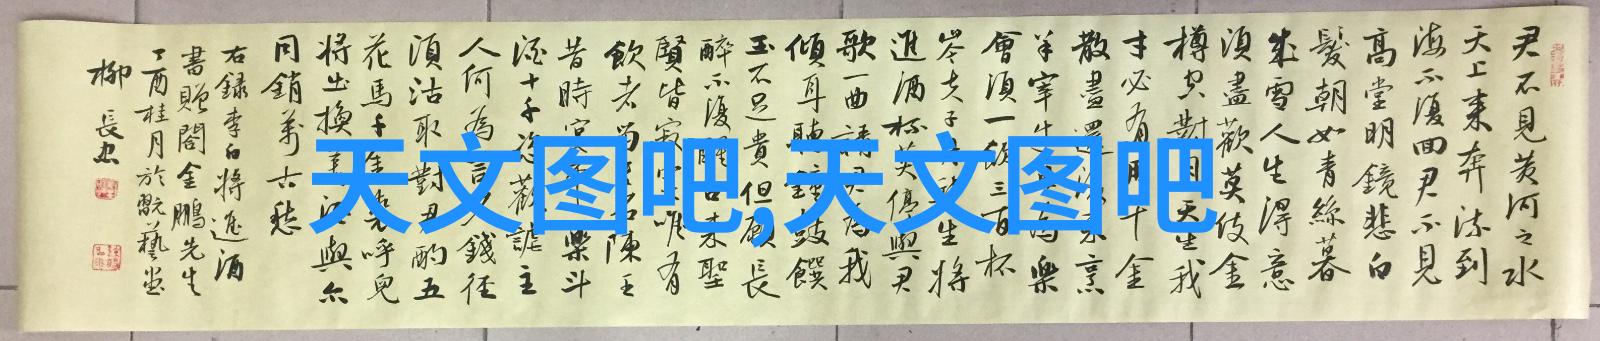 君不見黃河之水
天上來奔流到
海不復回君不見
高堂明鏡悲白
髮朝如青絲暮
成雪人生得意
須盡歡莫使金
樽空對月天生我
才必有用千金
散盡還復來烹
羊宰牛且為樂
會須一飲三百杯
岑夫子丹丘生將
進酒杯莫停與君
歌一曲請君為我
傾耳聽鐘鼓饌
玉不足貴但願長
醉不復醒古來聖
賢皆寂寞唯有
飲者留其名陳王
昔時宴平樂斗
酒十千恣歡謔主
人何為言少錢徑
須沽取對君酌五
花馬千金裘呼兒
將出換美酒與尔
同銷萬古愁
右錄李白將進酒
書贈閻金鵬先生
丁酉桂月於翫藝堂
柳長忠
天文图吧,天文图吧